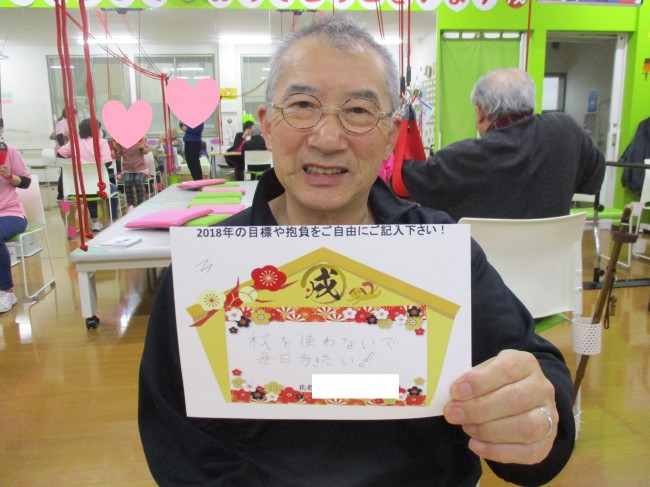 2018年の目標や抱負をご自由にご記入下さい!
戌
杖を使わないで
毎日歩きたい!
氏名